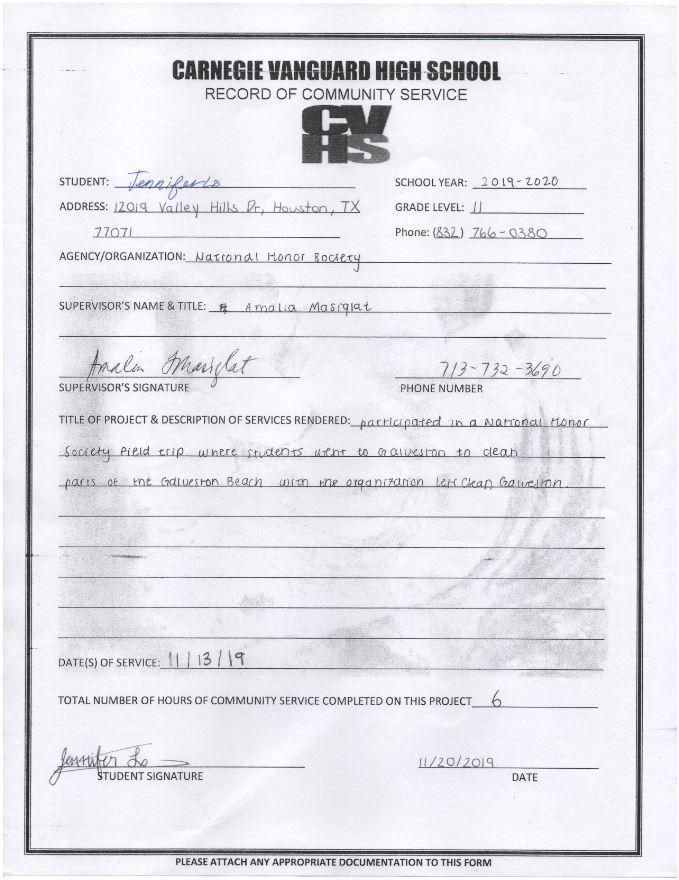 CARNEGIE VANGUARD HIGH SCHOOL
RECORD OF COMMUNITY SERVICE
CV
HS
STUDENT: Jennifer Lo SCHOOL YEAR: 2019-2020
ADDRESS: 12019 Valley Hills Dr, Houston, TX GRADE LEVEL: 11
77071 Phone: (832) 766-0380
AGENCY/ORGANIZATION: National Honor Society
SUPERVISOR'S NAME & TITLE: Amalia Masiglat
Amalia Masiglat 713-732-3690
SUPERVISOR'S SIGNATURE PHONE NUMBER
TITLE OF PROJECT & DESCRIPTION OF SERVICES RENDERED: participated in a National Honor
Society field trip where students went to Galveston to clean
parts of the Galveston Beach with the organization Let's Clean Galveston.
DATE(S) OF SERVICE: 11/13/19
TOTAL NUMBER OF HOURS OF COMMUNITY SERVICE COMPLETED ON THIS PROJECT 6
Jennifer Lo 11/20/2019
STUDENT SIGNATURE DATE
PLEASE ATTACH ANY APPROPRIATE DOCUMENTATION TO THIS FORM